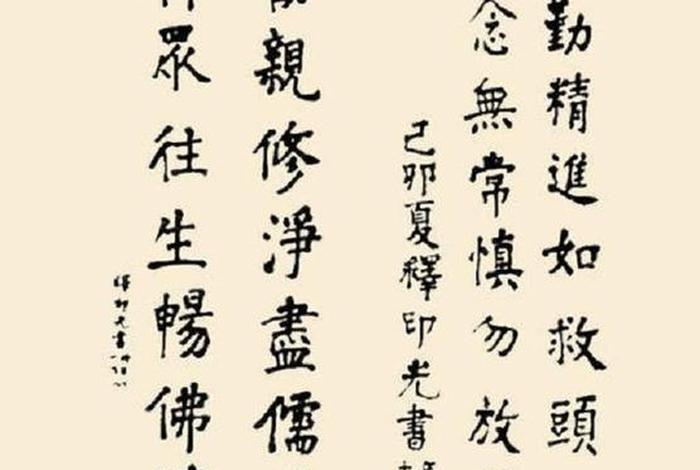 勤精進如救頭
念無常慎勿放
己卯夏釋印光書
親修淨盡儒
眾往生暢佛